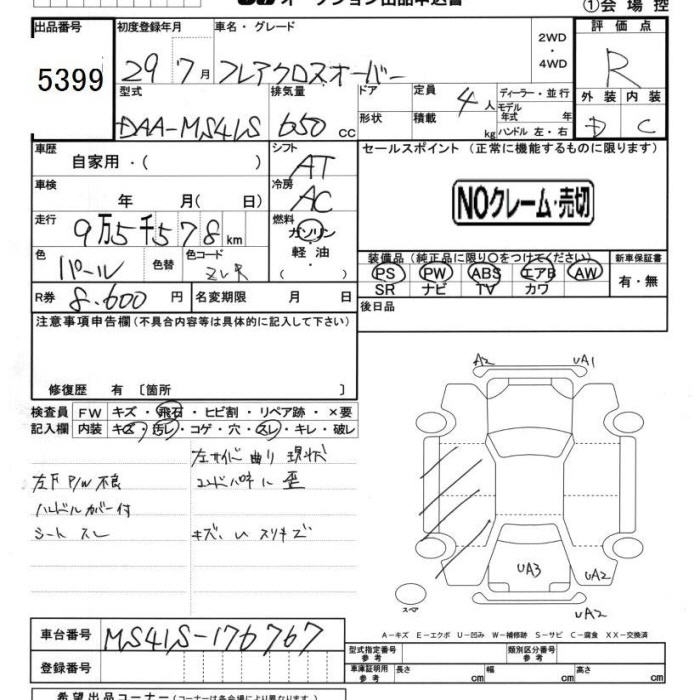 オークション出品申込書
①会場控
出品番号 初度登録年月 車名・グレード 評価点
5399 29 7月 フレアクロスオーバー 2WD・4WD R
型式 排気量 ドア 定員 ディーラー・並行 外装 内装
DAA-MS41S 650 cc 形状 積載 4人 kg モデル年式 年 ハンドル 左・右 D C
車歴 自家用・( ) シフト AT セールスポイント (正常に機能するものに限ります)
車検 年 月( 日) 冷房 AC NOクレーム・売切
走行 9万5千578km 燃料 ガソリン・軽油・( )
色 パール 色替 色コード ZLR 装備品(純正品に限り○をつけてください) 新車保証書
PS PW ABS エアB AW 有・無
SR ナビ TV カワ
R券 8.600円 名変期限 月 日 後日品
注意事項申告欄(不具合内容等は具体的に記入して下さい)
修復歴 有 [箇所 ]
A2 UA1
検査員 FW キズ・飛石・ヒビ割・リペア跡・×要
記入欄 内装 キズ・汚レ・コゲ・穴・スレ・キレ・破レ
左サイド曲り 現状
左下 P/W 不良
ハンドルカバー付
シート スレ キズ、
UA3 UA2
UA2
スペア
A－キズ E－エクボ U－凹み W－補修跡 S－サビ C－腐食 XX－交換済
車台番号 MS41S-176767 型式指定番号 参考 類別区分番号 参考
登録番号 車庫証明用 参考 長さ cm 幅 cm 高さ cm
希望出品コーナー(コーナーは各会場により異なります)